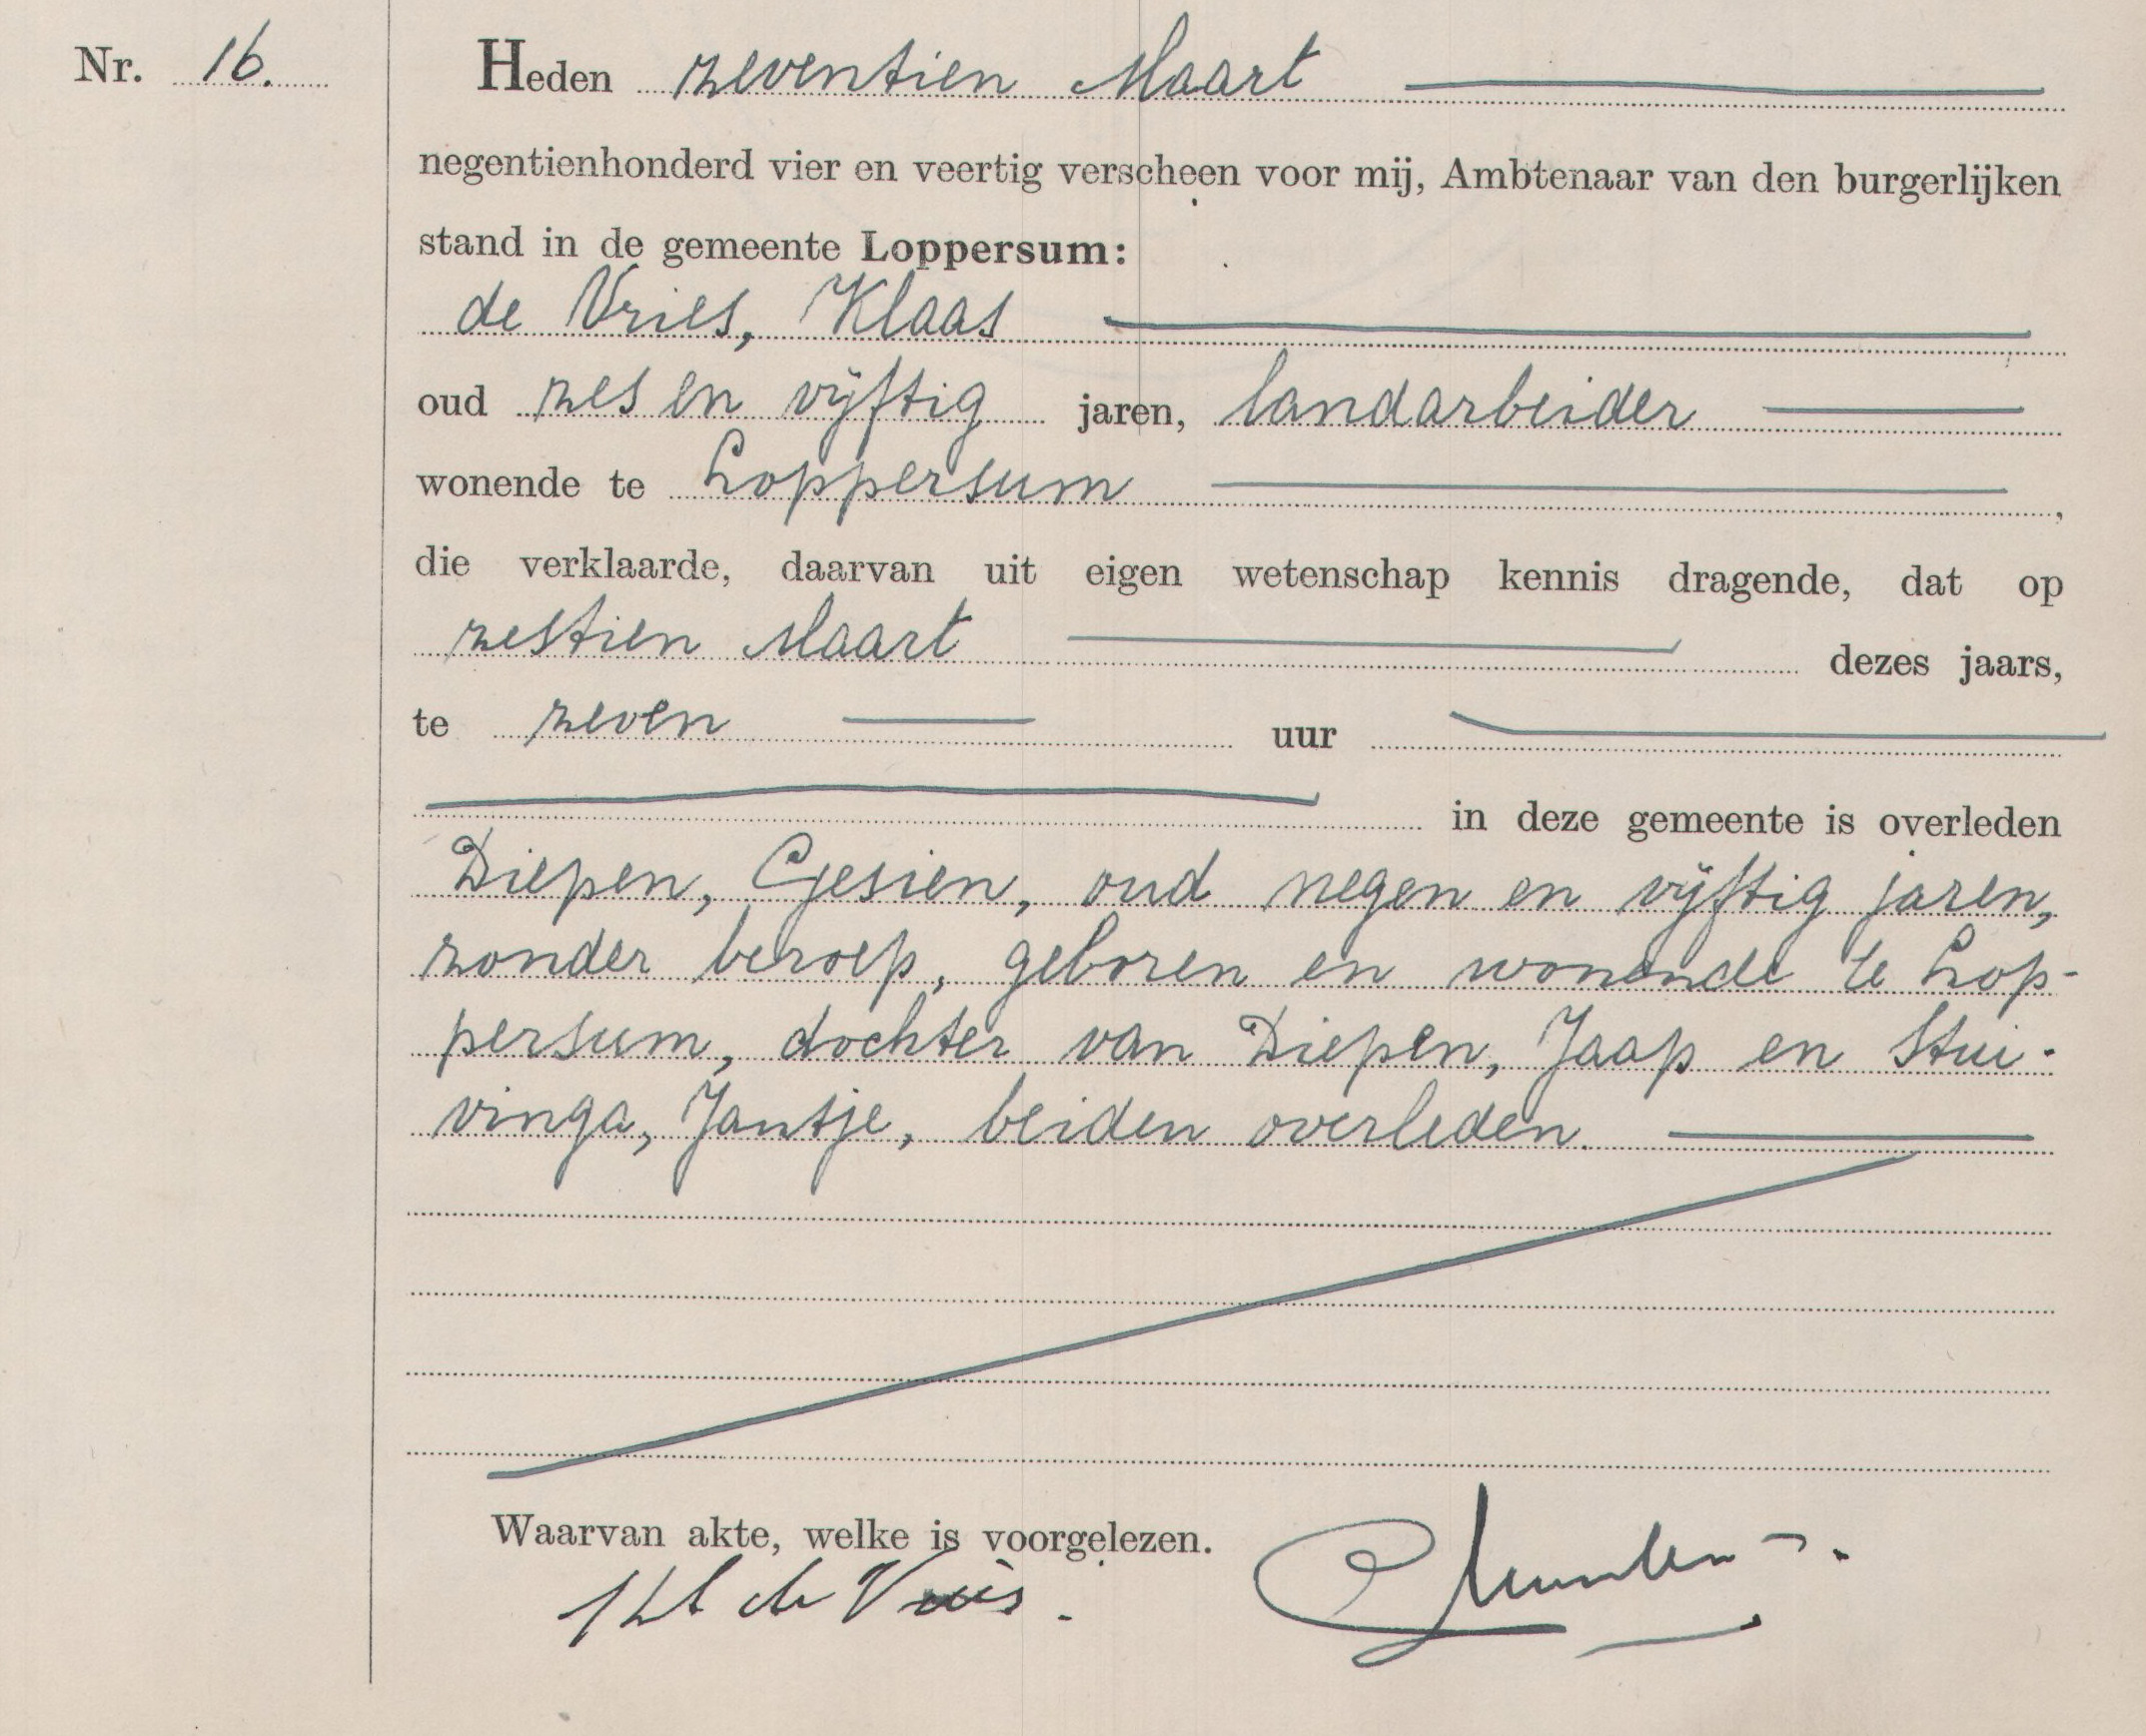 Nr. 16.
Heden zeventien Maart
negentienhonderd vier en veertig verscheen voor mij, Ambtenaar van den burgerlijken
stand in de gemeente Loppersum:
de Vries, Klaas
oud zes en vijftig jaren, landarbeider
wonende te Loppersum ,
die verklaarde, daarvan uit eigen wetenschap kennis dragende, dat op
zestien Maart dezes jaars,
te zeven uur
in deze gemeente is overleden
Diepen, Gesien, oud negen en vijftig jaren,
zonder beroep, geboren en wonende te Lop-
persum, dochter van Diepen, Jaap en Stui-
vinga, Jantje, beiden overleden.
Waarvan akte, welke is voorgelezen.
Kl de Vries.